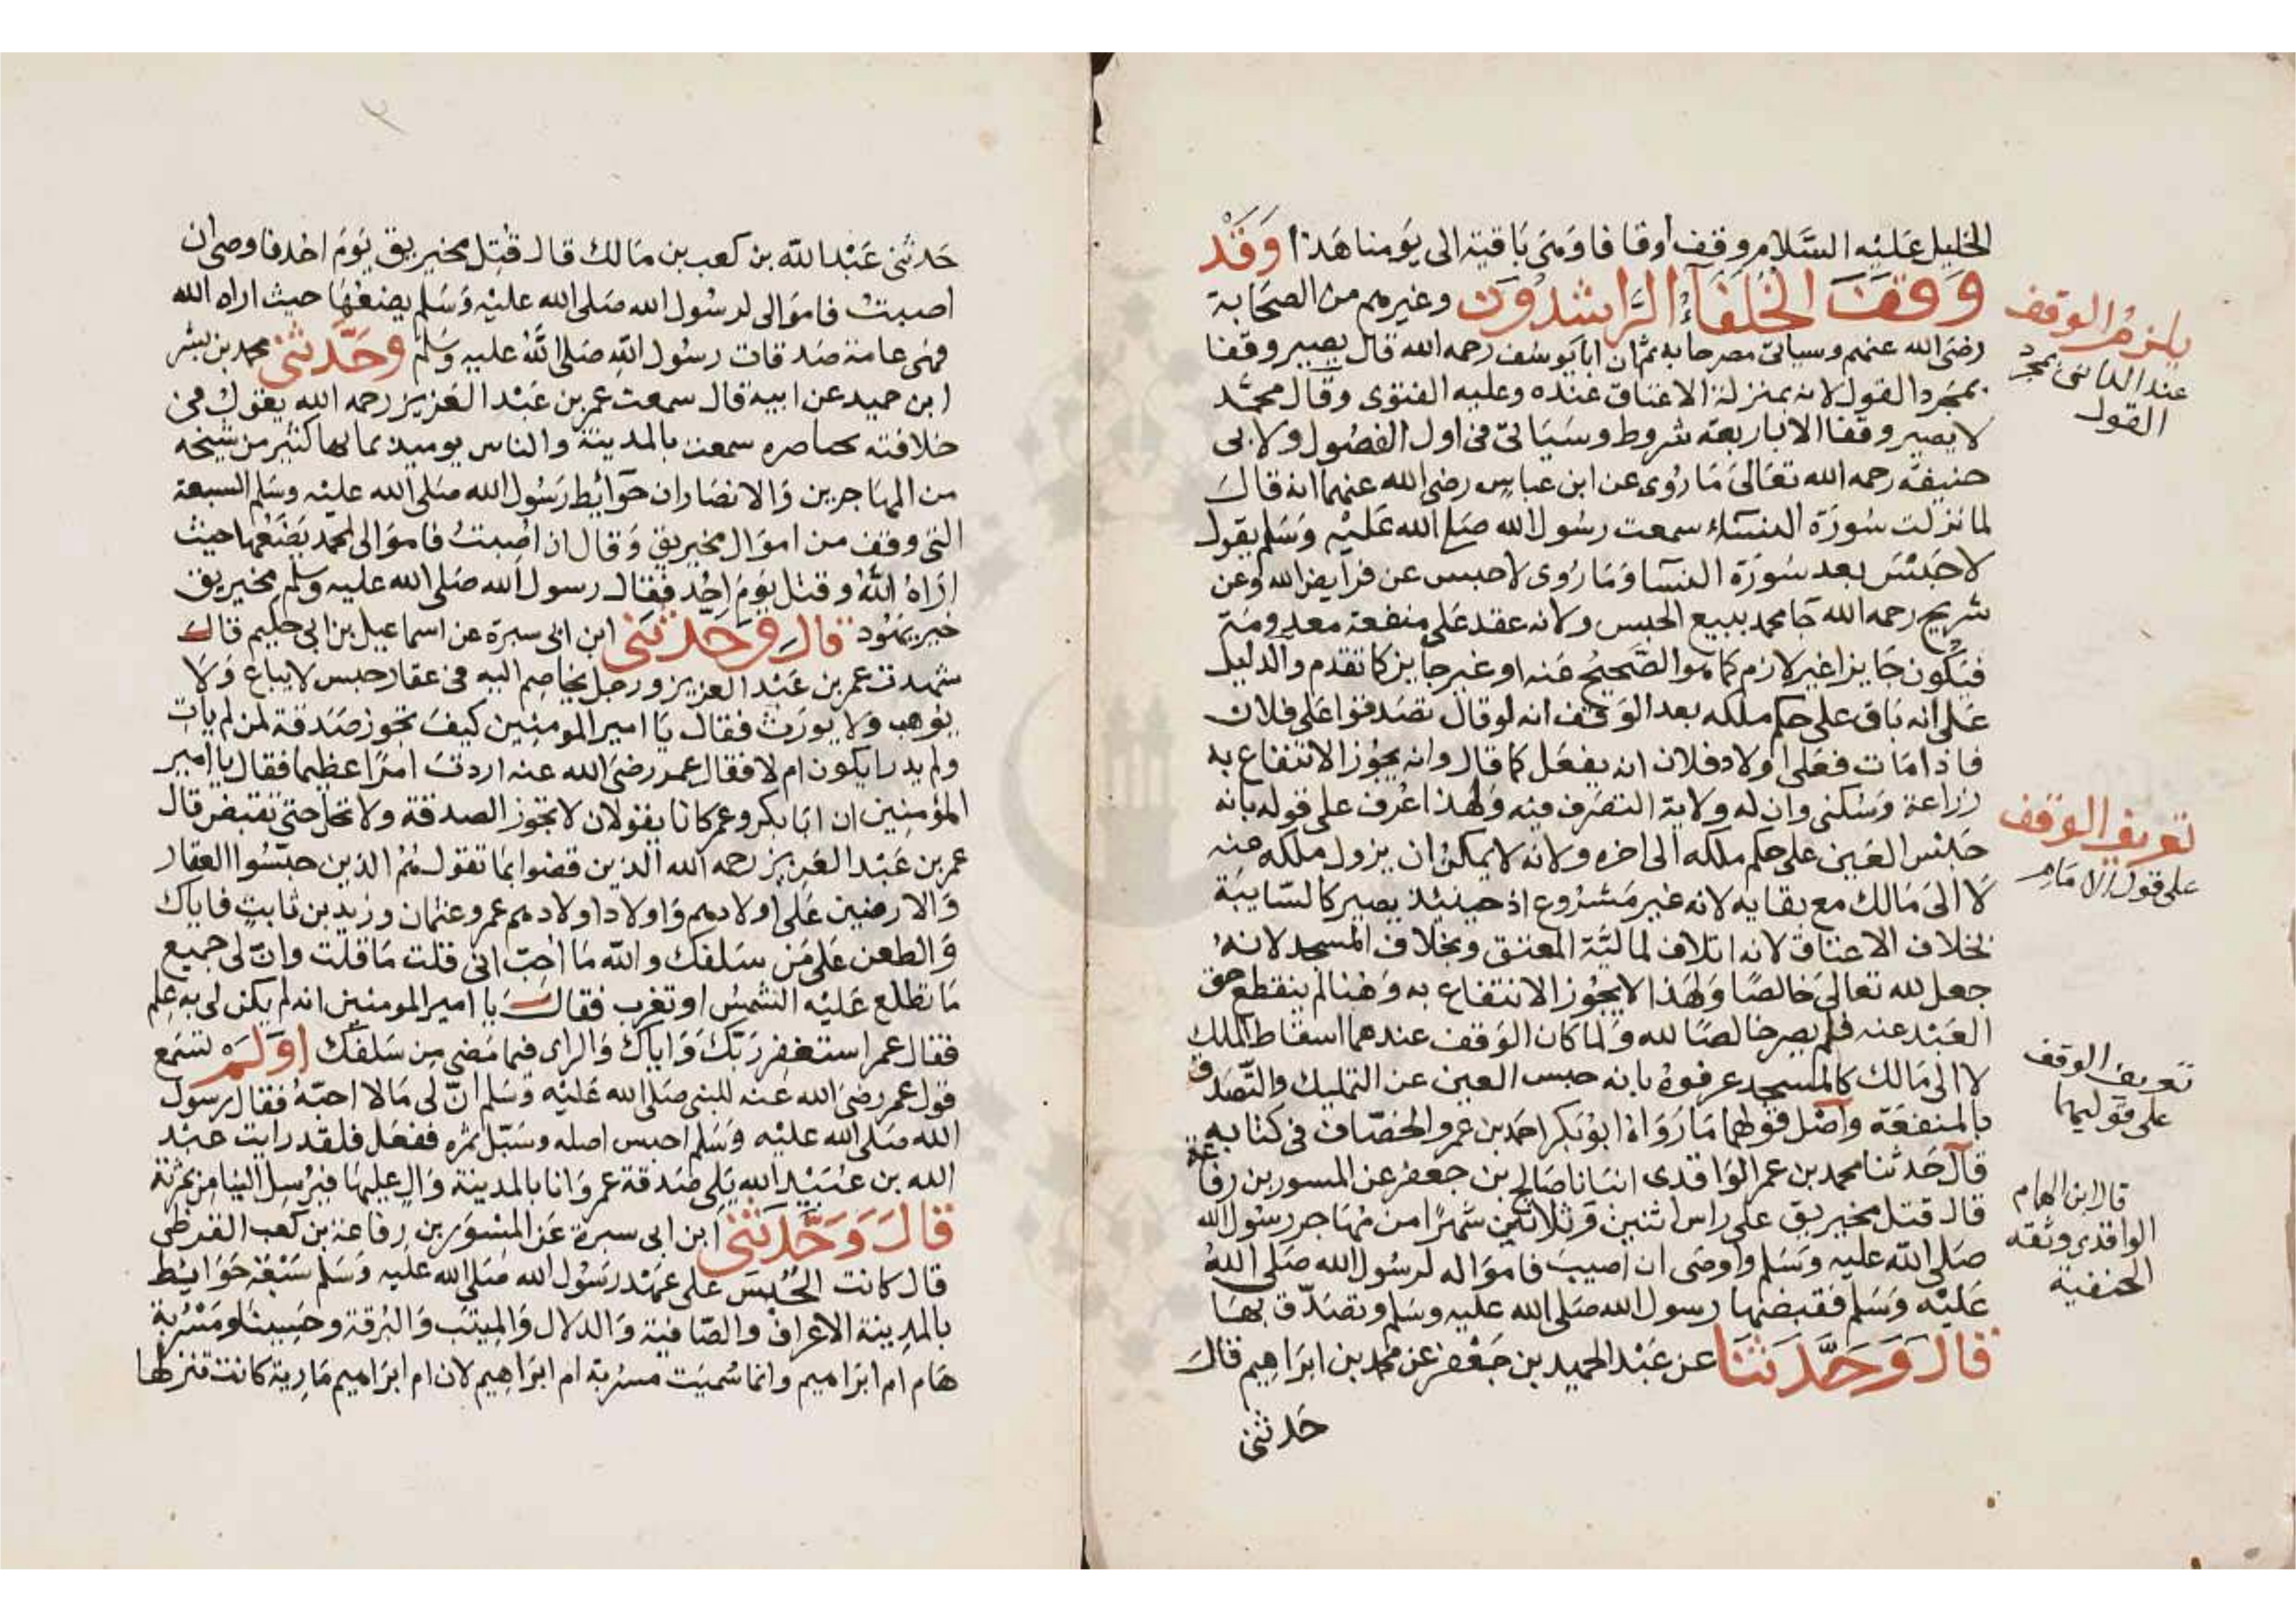 الخليل عليه السلام وقف أوقافا وهي باقية الى يومنا هذا وقد
وقف الخلفاء الراشدون وغيرهم من الصحابة
رضي الله عنهم وسياتي مصرحا به ثم ان ابا يوسف رحمه الله قال يصير وقفا
بمجرد القول لانه بمنزلة الاعتاق عنده وعليه الفتوى وقال محمد
لا يصير وقفا الا باربعة شروط وسياتي في اول الفصول ولابي
حنيفة رحمه الله تعالى ما روى عن ابن عباس رضي الله عنهما انه قال
لما نزلت سورة النساء سمعت رسول الله صلى الله عليه وسلم يقول
لا حبس بعد سورة النسا وما روى لا حبس عن فرايض الله وعن
شريح رحمه الله جا محمد ببيع الحبس ولانه عقد على منفعة معدومة
فيكون جايزا غير لازم كما هو الصحيح عنه او غير جايز كما تقدم والدليل
على انه باق على حكم ملكه بعد الوقف انه لو قال تصدقوا على فلان
فاذا مات فعلى اولاد فلان انه يفعل كما قال وانه يجوز الانتفاع به
زراعة وسكنى وان له ولاية التصرف فيه ولهذا اعرف على قوله بانه
حبس العين على حكم ملكه الى اخره ولانه لا يمكن ان يزول ملكه عنه
لا الى مالك مع بقايه لانه غير مشروع اذ حينيذ يصير كالسايبة
بخلاف الاعتاق لانه اتلاف لمالية المعتق وبخلاف المسجد لانه
جعل لله تعالى خالصا ولهذا لا يجوز الانتفاع به وهنا لم ينقطع حق
العبد عنه فلم يصر خالصا لله ولما كان الوقف عندهما اسقاط الملك
لا الى مالك كالمسجد عرفوه بانه حبس العين عن التمليك والتصدق
بالمنفعة واصل قولهما ما رواه ابو بكر احمد بن عمرو الخصاف في كتابه
قال حدثنا محمد بن عمر الواقدى انبانا صالح بن جعفر عن المسور بن رفاعة
قال قتل مخيريق على راس اثنين وثلاثين شهرا من مهاجر رسول الله
صلى الله عليه وسلم واوصى ان اصيب فامواله لرسول الله صلى الله
عليه وسلم فقبضها رسول الله صلى الله عليه وسلم وتصدق بها
قال وحدثنا عن عبد الحميد بن جعفر عن محمد بن ابراهيم قال
حدثني
يلزم الوقف
عند الثانى بمجرد
القول
تعريف الوقف
على قول الامام
تعريف الوقف
على قوليهما
قال ابن الهمام
الواقدى وثقه
الحنفية
حدثني عبد الله بن كعب بن مالك قال قتل مخيريق يوم احد فاوصى ان
اصبت فاموالى لرسول الله صلى الله عليه وسلم يضعها حيث اراه الله
فهى عامة صدقات رسول الله صلى الله عليه وسلم وحدثني محمد بن بشر
ابن حميد عن ابيه قال سمعت عمر بن عبد العزيز رحمه الله يقول في
خلافته بخناصره سمعت بالمدينة والناس يوميذ بها كثير من شيخه
من المهاجرين والانصار ان حوايط رسول الله صلى الله عليه وسلم السبعة
التي وقف من اموال مخيريق وقال ان اصبت فاموالى لمحمد يضعها حيث
اراه الله وقتل يوم احد فقال رسول الله صلى الله عليه وسلم مخيريق
خير يهود قال وحدثني ابن ابى سبرة عن اسماعيل بن ابى حكيم قال
شهدت عمر بن عبد العزيز ورجل يخاصم اليه في عقار حبس لا يباع ولا
يوهب ولا يورث فقال يا امير المومنين كيف تجوز صدقة لمن لم يات
ولم يدر ايكون ام لا فقال عمر رضي الله عنه اردت امرا عظيما فقال يا امير
المؤمنين ان ابا بكر وعمر كانا يقولان لا تجوز الصدقة ولا تحل حتى تقبض قال
عمر بن عبد العزيز رحمه الله الذين قضوا بما تقول هم الذين حبسوا العقار
والارضين على اولادهم واولاد اولادهم عمر وعثمان وزيد بن ثابت فاياك
والطعن على من سلفك والله ما احب اني قلت ما قلت وان لى جميع
ما تطلع عليه الشمس او تغرب فقال يا امير المومنين انه لم يكن لى به علم
فقال عمر استغفر ربك واياك والراى فيما مضى من سلفك اولم تسمع
قول عمر رضي الله عنه للنبي صلى الله عليه وسلم ان لى مالا احبه فقال رسول
الله صلى الله عليه وسلم احبس اصله وسبل ثمره ففعل فلقد رايت عبد
الله بن عبيد الله يلى صدقة عمر وانا بالمدينة وال عليها فيرسل الينا من ثمرته
قال وحدثني ابن ابى سبرة عن المسور بن رفاعة بن كعب القرظى
قال كانت الحبس على عهد رسول الله صلى الله عليه وسلم سبعة حوايط
بالمدينة الاعراف والصافية والدلال والميثب والبرقة وحسينا ومشربة
هام ام ابراهيم وانما سميت مشربة ام ابراهيم لان ام ابراهيم مارية كانت تنزلها